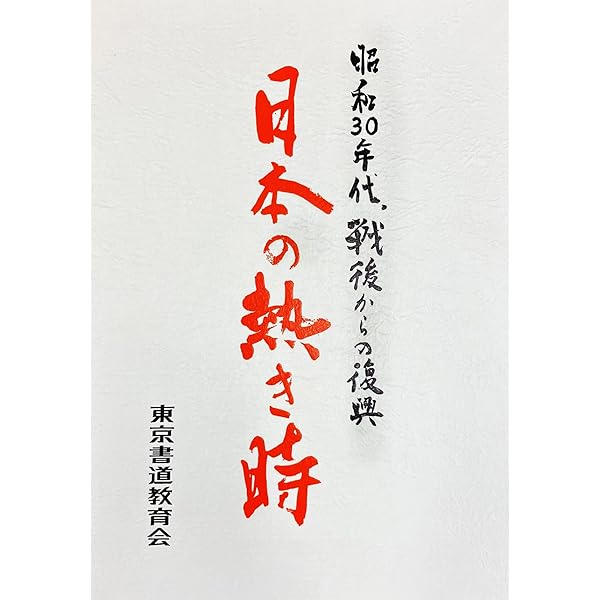 昭和30年代、戦後からの復興
日本の熱き時
東京書道教育会